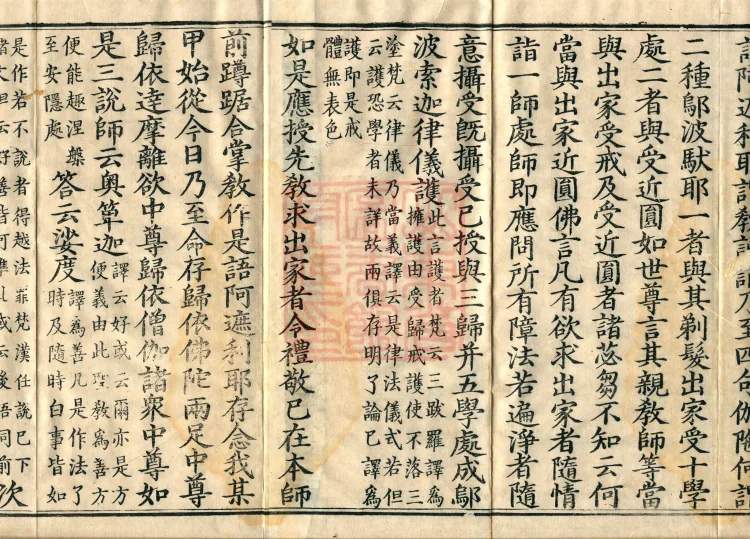 乃至四句
二種鄔波馱耶一者與其剃髮出家受十學
處二者與受近圓如世尊言其親教師等當
與出家受戒及受近圓者諸苾芻不知云何
當與出家近圓佛言凡有欲求出家者隨情
詣一師處師即應問所有障法若遍淨者隨
意攝受既攝受已授與三歸并五學處成鄔
波索迦律儀護
此言護者梵云三跋羅譯為
擁護由受歸戒護使不落三
塗梵云律儀乃當義譯云是律法儀式若但
云護恐學者未詳故兩俱存明了論已譯為
護即是戒
體無表色
如是應授先教求出家者令禮敬已在本師
前蹲踞合掌教作是語阿遮利耶存念我某
甲始從今日乃至命存歸依佛陀兩足中尊
歸依達摩離欲中尊歸依僧伽諸衆中尊如
是三說師云奧箄迦
譯云好或云爾亦是方
便義由此聖教為善方
便能趣涅槃
至安隱處
答云娑度
譯為善凡是作法了
時及隨時白事皆如
是作若不說者得越法罪梵漢任說已下
次